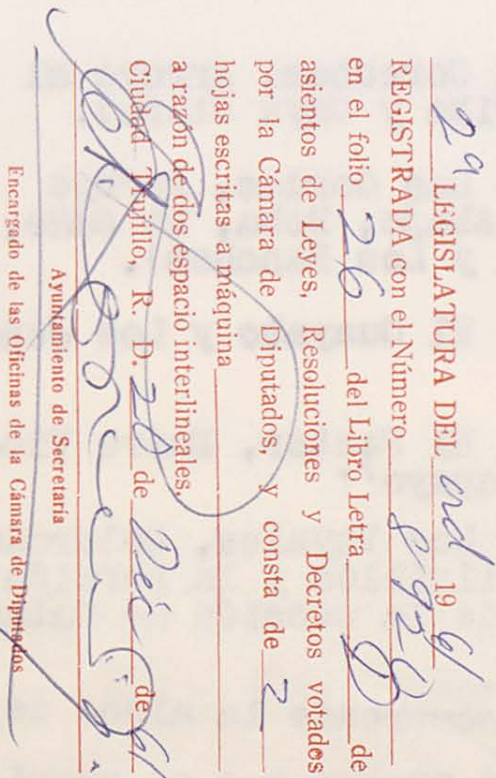 2ª LEGISLATURA DEL ord 1961
REGISTRADA con el Número 8920
en el folio 26 del Libro Letra de
asientos de Leyes, Resoluciones y Decretos votados
por la Cámara de Diputados, y consta de 2
hojas escritas a máquina
a razón de dos espacio interlineales.
Ciudad Trujillo, R. D. 20 de Dic de 61
Ayuntamiento de Secretaría
Encargado de las Oficinas de la Cámara de Diputados